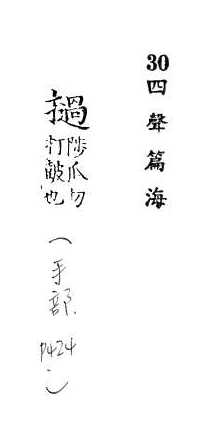 30四聲篇海
撾陟瓜切
打鼓也
(手部
P424)